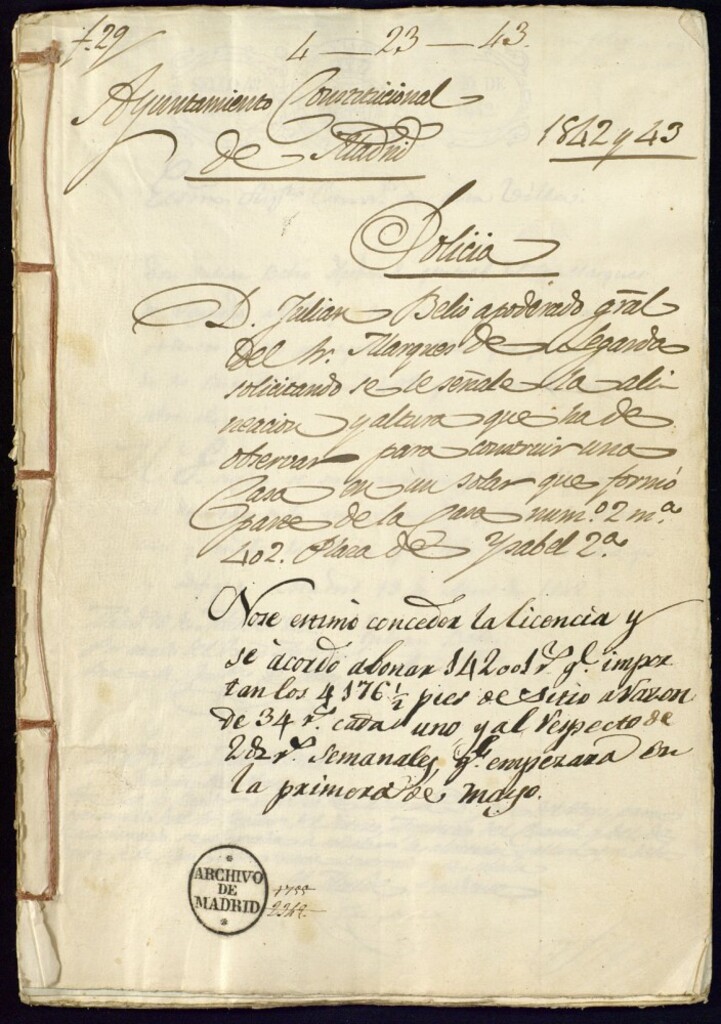 f. 29
4 — 23 — 43.
Ayuntamiento Constitucional
de Madrid
1842 y 43
Policia
D. Julian Belio apoderado gral
del Sr. Marques de Legarda
solicitando se le señale la ali-
neacion y altura que ha de
observar para construir una
Casa en un solar que formó
parte de la Casa num.º 2 m.ª
402. Plaza de Ysabel 2.ª
No se estimó conceder la licencia y
se acordó abonar 142001 r.s q.e impor
tan los 4176 1/2 pies de sitio a razon
de 34 r.s cada uno y al respecto de
r.s semanales, q.e empezara en
la primera de mayo.
ARCHIVO
DE
MADRID